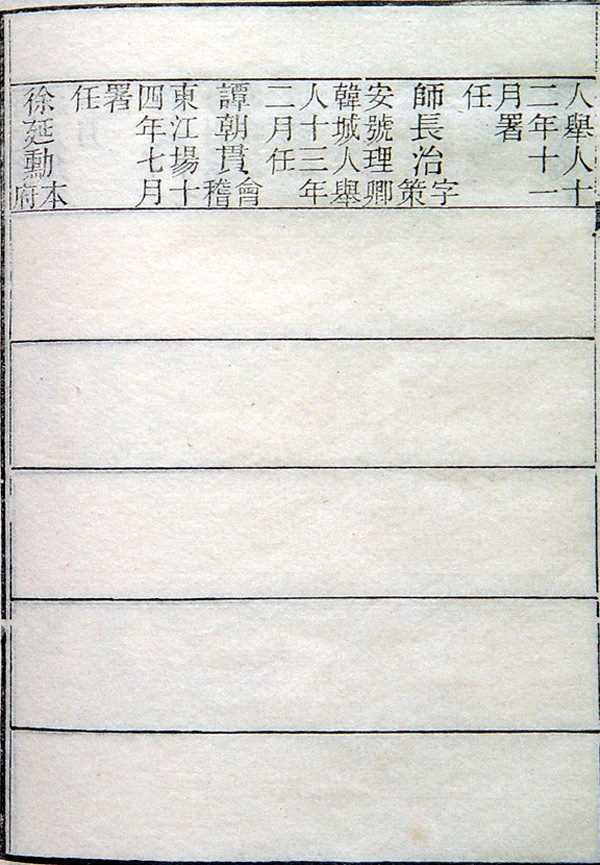 人舉人十
二年十一
月署
任
師長治字策
安號理卿
韓城人舉
人十三年
二月任
譚朝貫會稽
東江場十
四年七月
署
任
徐延勳本府